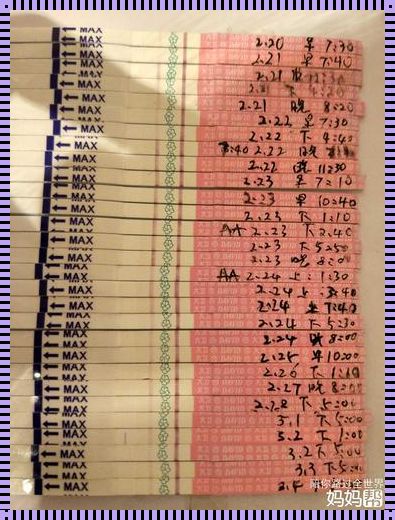 MAX 2.20 早 7:30
MAX 2.21 早 7:40
MAX 2.21
MAX 2.21 下 4:20
MAX 2.21 晚 8:20
MAX 2.22 早 7:30
MAX 2.22 下 4:40
MAX 2.22 晚
MAX 2.22 晚 11:30
MAX 2.23 早 7:10
MAX 2.23 早 10:40
MAX 2.23 下 1:10
MAX AA 2.23 下 2:40
MAX 2.23 下 5:50
MAX 2.23 晚 8:00
MAX AA 2.24 上 1:30
MAX 2.24 上
MAX 2.24
MAX 2.24 下 5:30
MAX 2.24 晚 8:00
MAX 2.25 早 10:00
MAX 2.26 下
MAX 2.27 晚 8:00
MAX 2.28 下 5:00
MAX 3.1 下 5:00
MAX 3.2 下 1:00
MAX 3.2 下 5:00
MAX 3.3 下 5:00
MAX
陪你路过全世界
妈妈帮